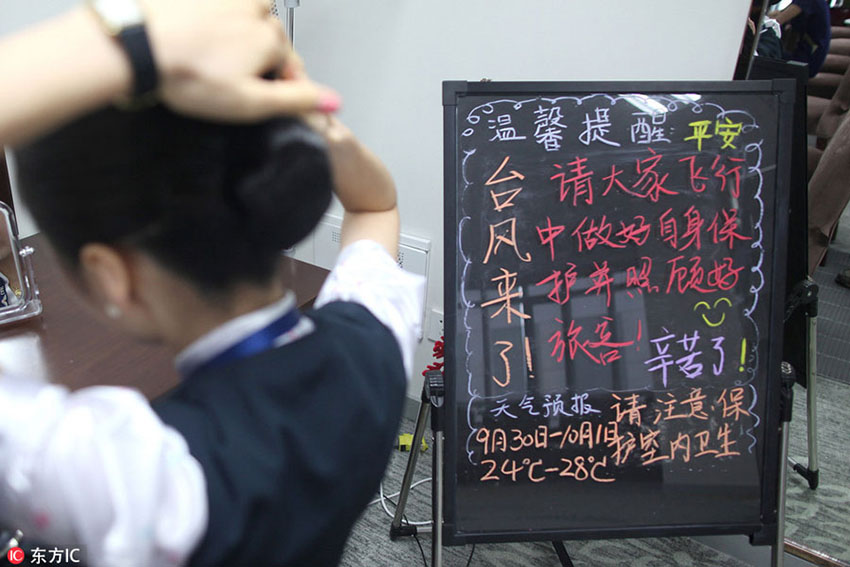 温馨提醒:平安
台风来了!
请大家飞行
中做好自身保
护并照顾好
旅客!
辛苦了!
天气预报:
9月30日-10月1日
24℃-28℃
请注意:保
护室内卫生
IC 东方IC